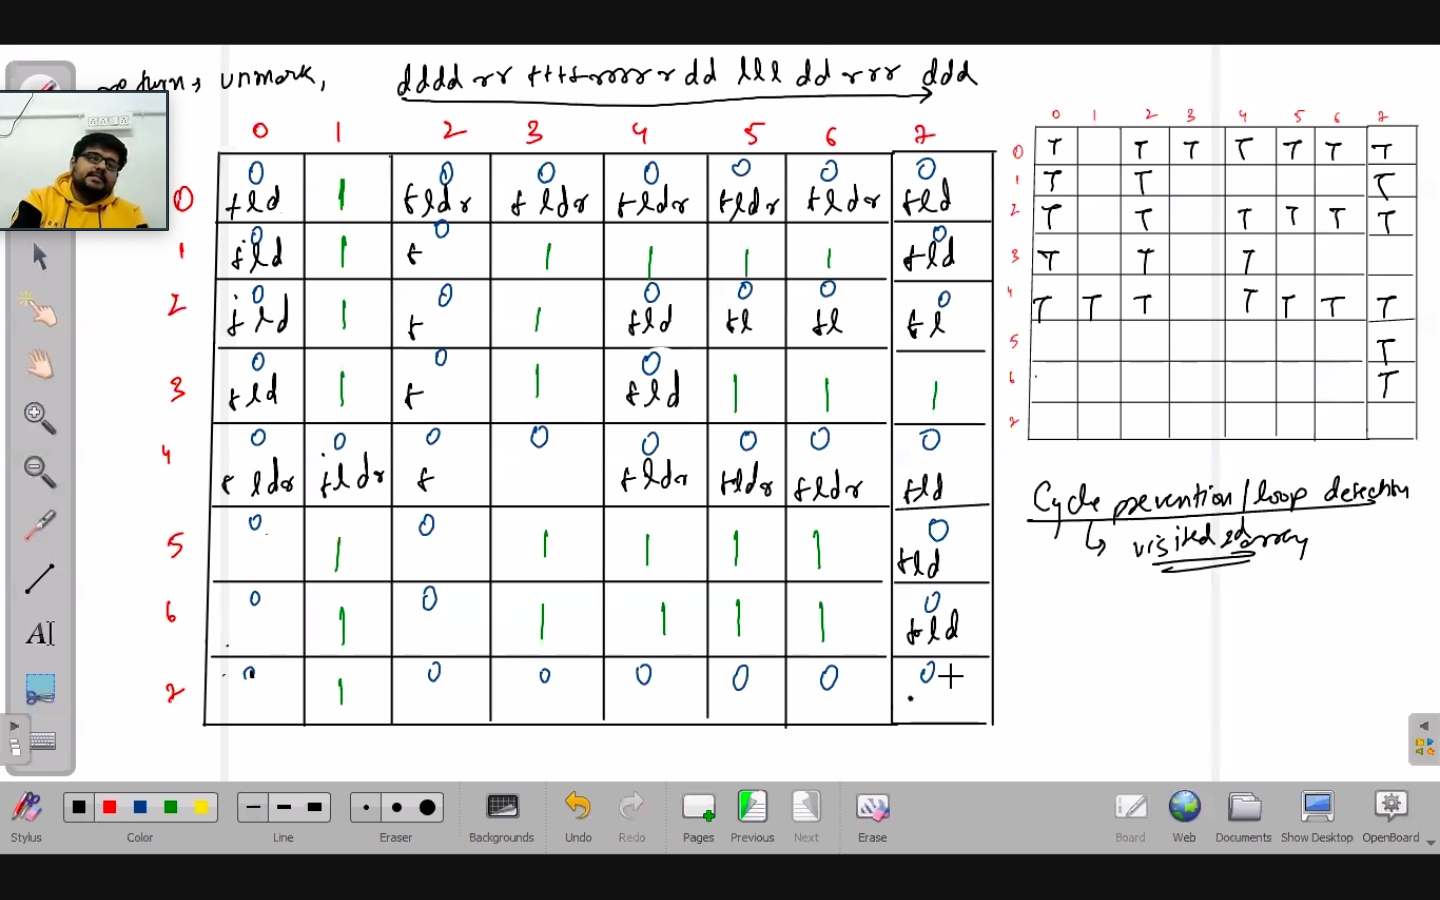 return, unmark, dddd rr tttt rrrr r dd lll dd rrr ddd
0 1 2 3 4 5 6 7
0 0 1 0 0 0 0 0 0
tld tldr tldr tldr tldr tldr tld
1 0 1 0 1 1 1 1 0
tld t tld
2 0 1 0 1 0 0 0 0
tld t tld tl tl tl
3 0 1 0 1 0 1 1 1
tld t tld
4 0 0 0 0 0 0 0 0
tldr tldr t tldr tldr tldr tld
5 0 1 0 1 1 1 1 0
tld
6 0 1 0 1 1 1 1 0
tld
7 0 1 0 0 0 0 0 0+
0 1 2 3 4 5 6 7
0 T T T T T T T
1 T T T
2 T T T T T T
3 T T T
4 T T T T T T T
5 T
6 T
7
Cycle prevention/loop detection
↳ visited 2d array
Stylus Color Line Eraser Backgrounds Undo Redo Pages Previous Next Erase Board Web Documents Show Desktop OpenBoard